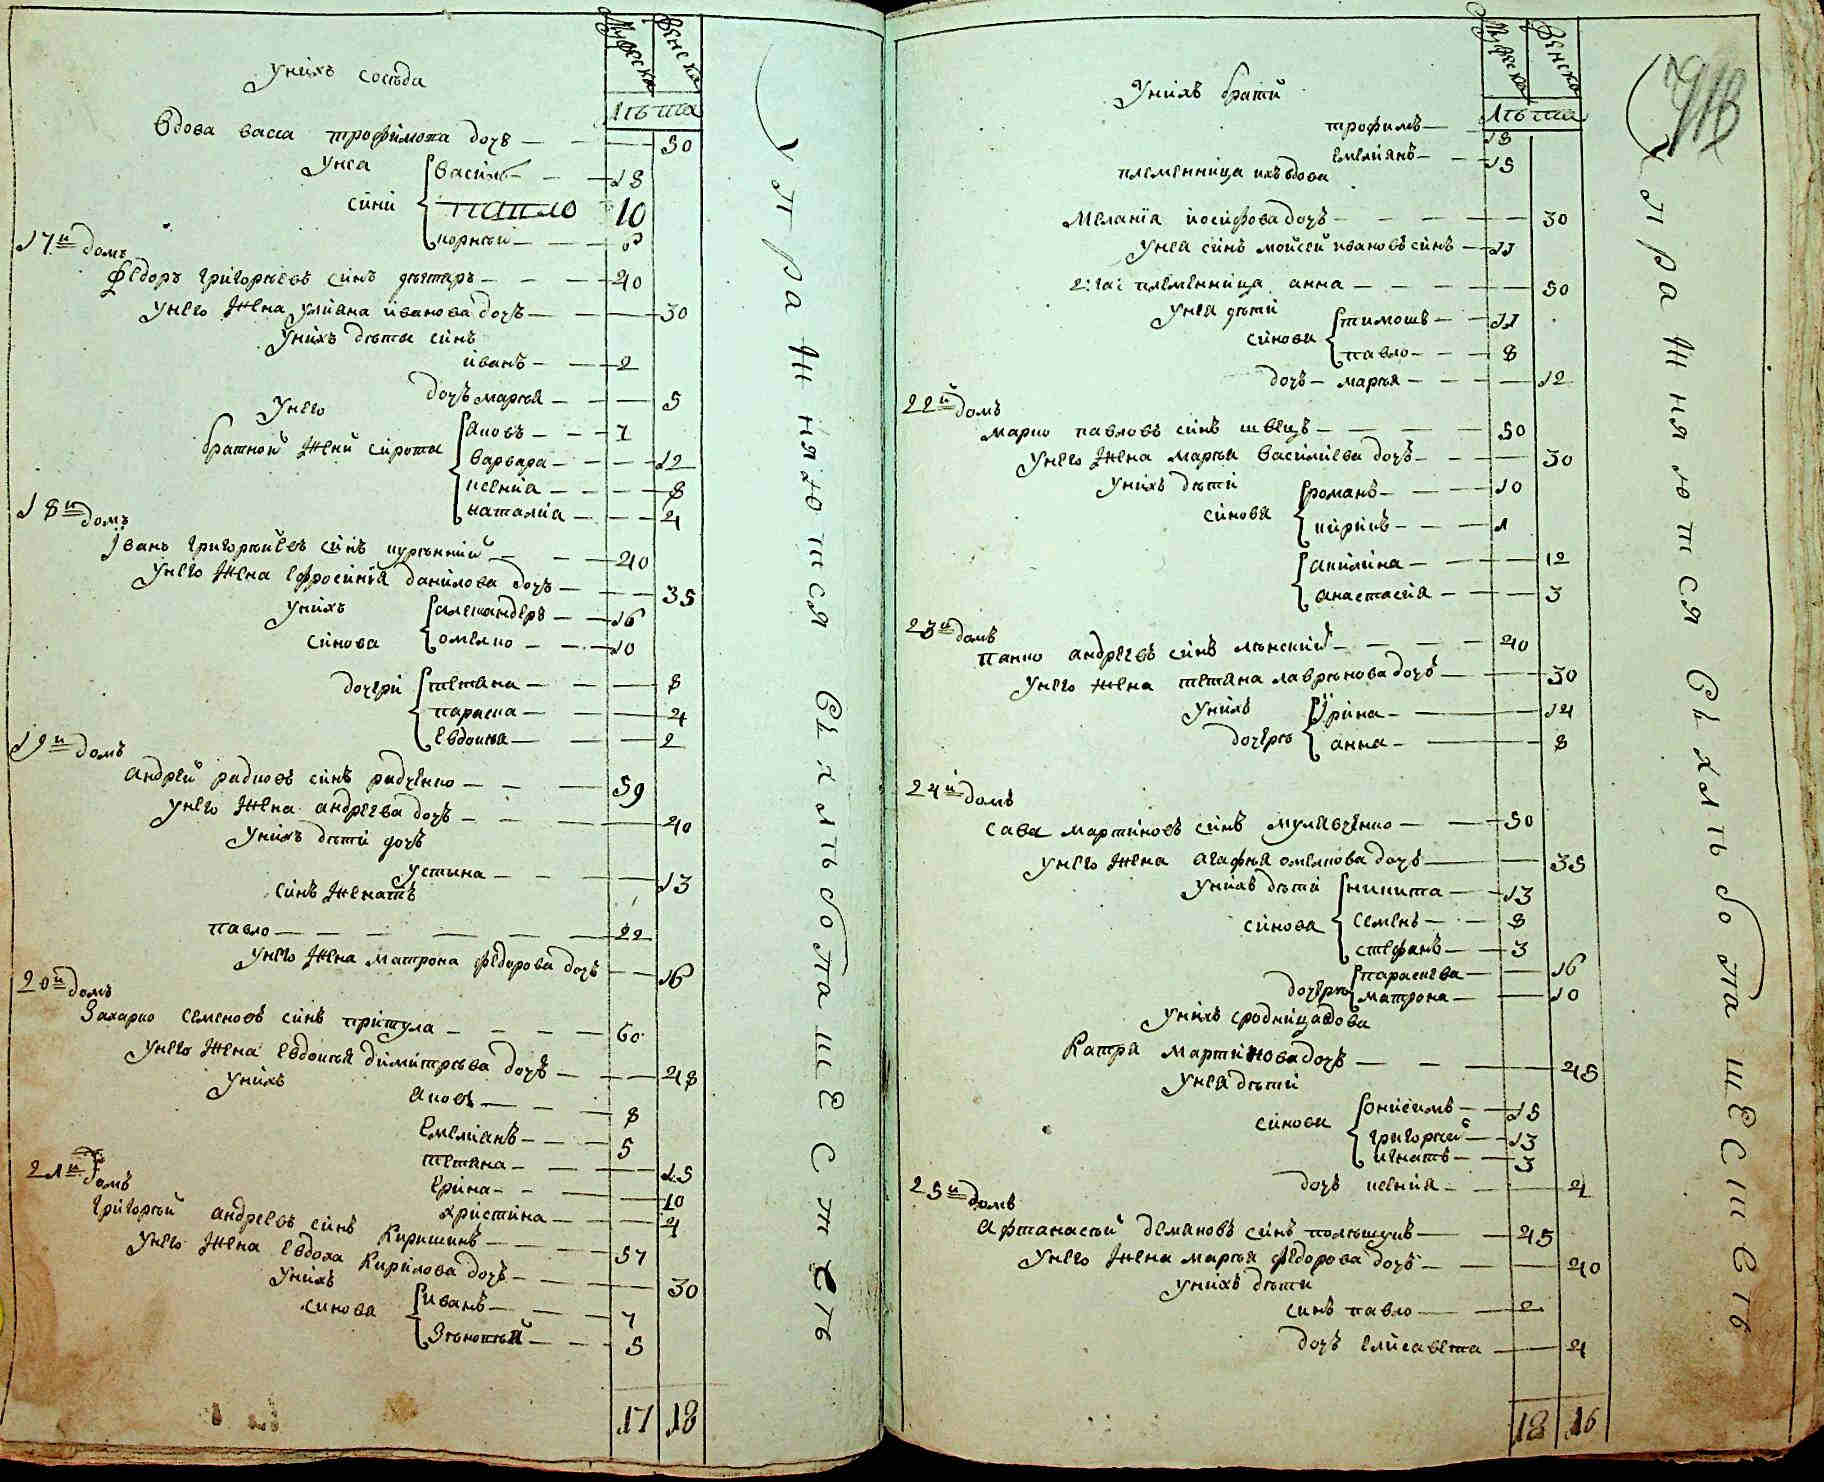 Мужеска Женска
лѣта
Унихъ сосѣда
Вдова васса трофимова дочъ — 50
Унеа
сини
василь — 18
павло 10
корнѣй — 6
17й домъ
Федоръ григорьевъ синъ — 40
Унего жена улияна иванова дочъ — 30
Унихъ дѣти синъ
иванъ — 2
дочъ марья — 5
Унего
братной жени сироти
яковъ — 7
варвара — 12
ксения — 8
наталия — 4
18й домъ
Іванъ григорьевъ синъ — 40
Унего жена ефросиния данилова дочъ — 35
Унихъ
синова
александеръ — 16
омелко — 10
дочери
тетяна — 8
параска — 4
евдокия — 2
19й домъ
андрей радковъ синъ радченко — 59
Унего жена андреева дочъ — 40
Унихъ дѣти дочъ
устина — 13
синъ женатъ
павло — 22
Унего жена матрона федорова дочъ — 16
20й домъ
Захарко семеновъ синъ притула — 60
Унего жена евдокия димитрѣва дочъ — 48
Унихъ
яковъ — 8
емелиянъ — 5
тетяна — 15
ерина — 10
христина — 4
21й домъ
Григорий андреевъ синъ Киришинъ — 57
Унего жена евдоха кирилова дочъ — 30
Унихъ
синова
иванъ — 7
Зѣновий — 5
17 18
Упражняются в хлѣбопашестве
Мужеска Женска
лѣта
Унихъ брати
трофимъ — 18
емелиянъ — 15
племенница ихъ вдова
Мелания йосифова дочъ — 30
Унея синъ мойсей ивановъ синъ — 11
2:га: племенница анна — 50
Унея дѣти
синови
тимошъ — 11
павло — 8
дочъ — марья — 12
22й домъ
марко павловъ синъ швецъ — 50
Унего жена марья василиева дочъ — 30
Унихъ дѣти
синова
романъ — 10
кирикъ — 1
акилина — 12
анастасия — 3
23й домъ
панко андреевъ синъ — 40
Унего жена тетяна лаврѣнова дочъ — 30
Унихъ
дочерѣ
Ірина — 14
анна — 8
24й домъ
сава мартиновъ синъ мулявченко — 50
Унего жена агафия омелкова дочъ — 35
Унихъ дѣти
синова
никита — 13
семенъ — 8
стефанъ — 3
дочерѣ
параскева — 16
матрона — 10
Унихъ сродница вдова
Катря мартинова дочъ — 45
Унея дѣти
синови
онисимъ — 15
григорий — 13
игнатъ — 3
дочъ ксения — 4
25й домъ
афтанасий демяновъ синъ полѣщукъ — 45
Унего жена марья федорова дочъ — 40
Унихъ дѣти
синъ павло — 2
дочъ елисавета — 4
18 16
Упражняются в хлѣбопашестве